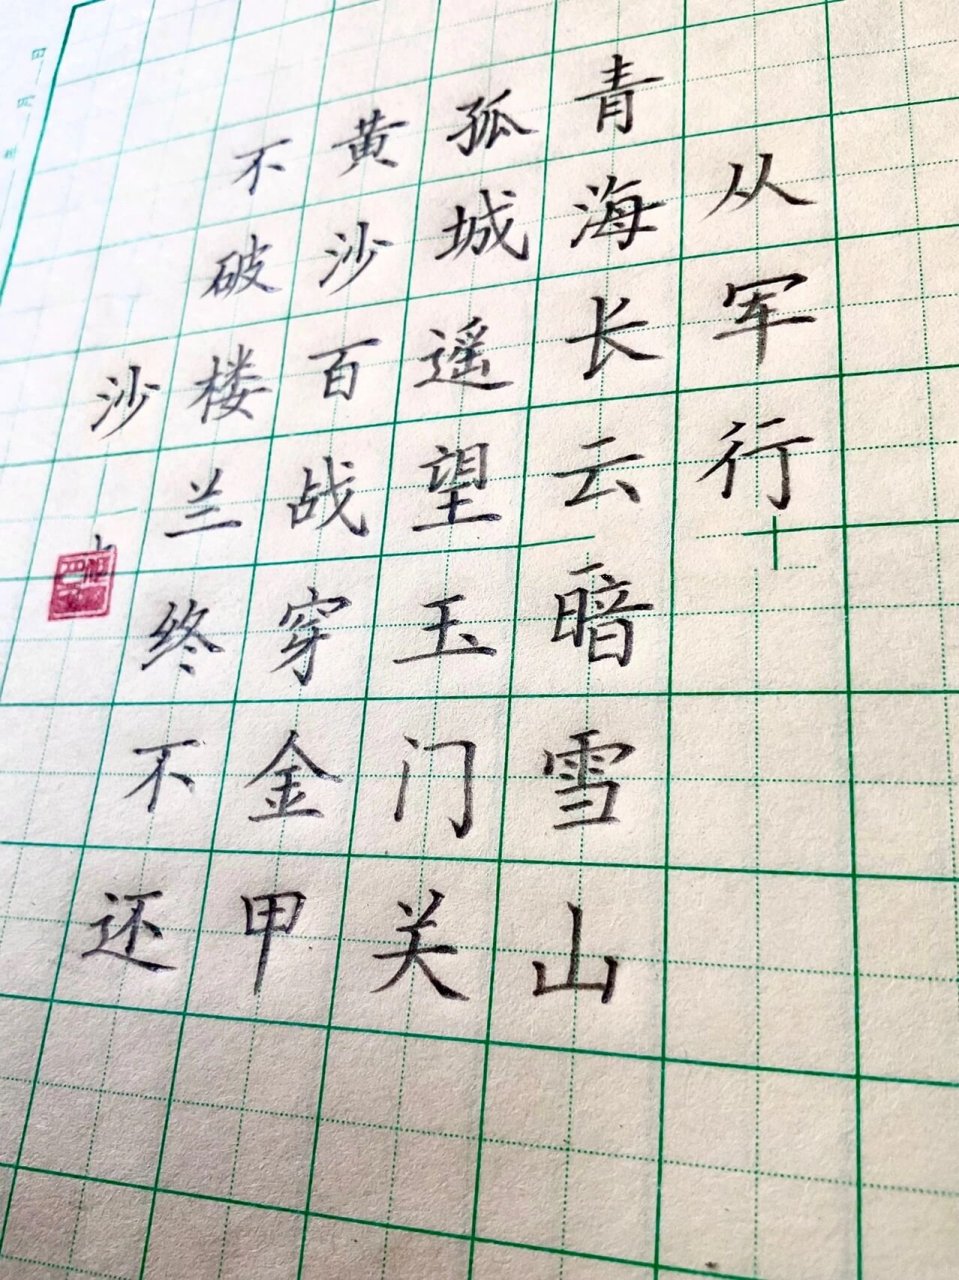 从军行
青海长云暗雪山
孤城遥望玉门关
黄沙百战穿金甲
不破楼兰终不还
沙